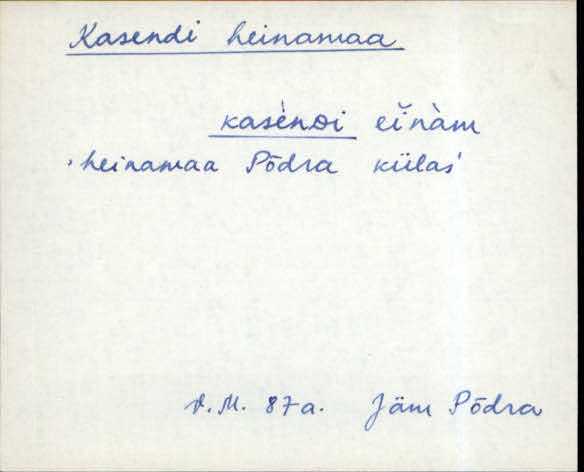 Kasendi heinamaa
kasèndi eĭnàm
heinamaa Põdra külas
V.M. 87a. Jäm Põdra